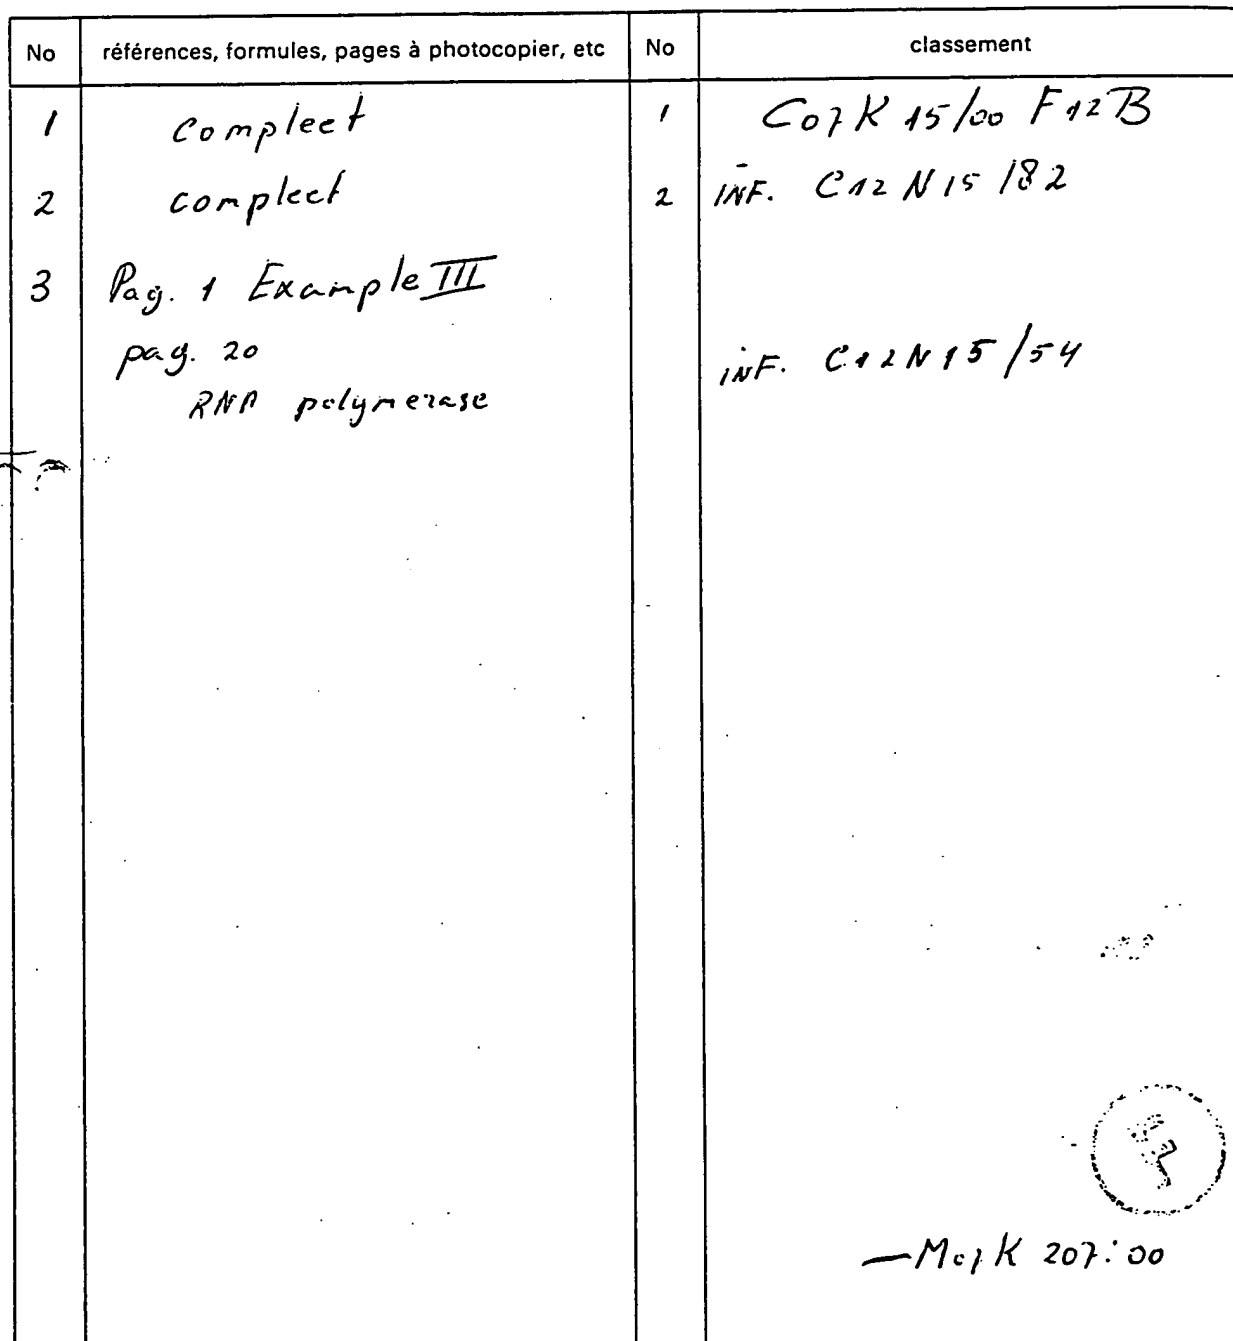 No références, formules, pages à photocopier, etc No classement
1 Compleet 1 C07K 15/00 F12B
2 compleet 2 INF. C12N15/82
3 Pag. 1 Example III
pag. 20 INF. C12N15/54
RNA polymerase
—M07K 207:00